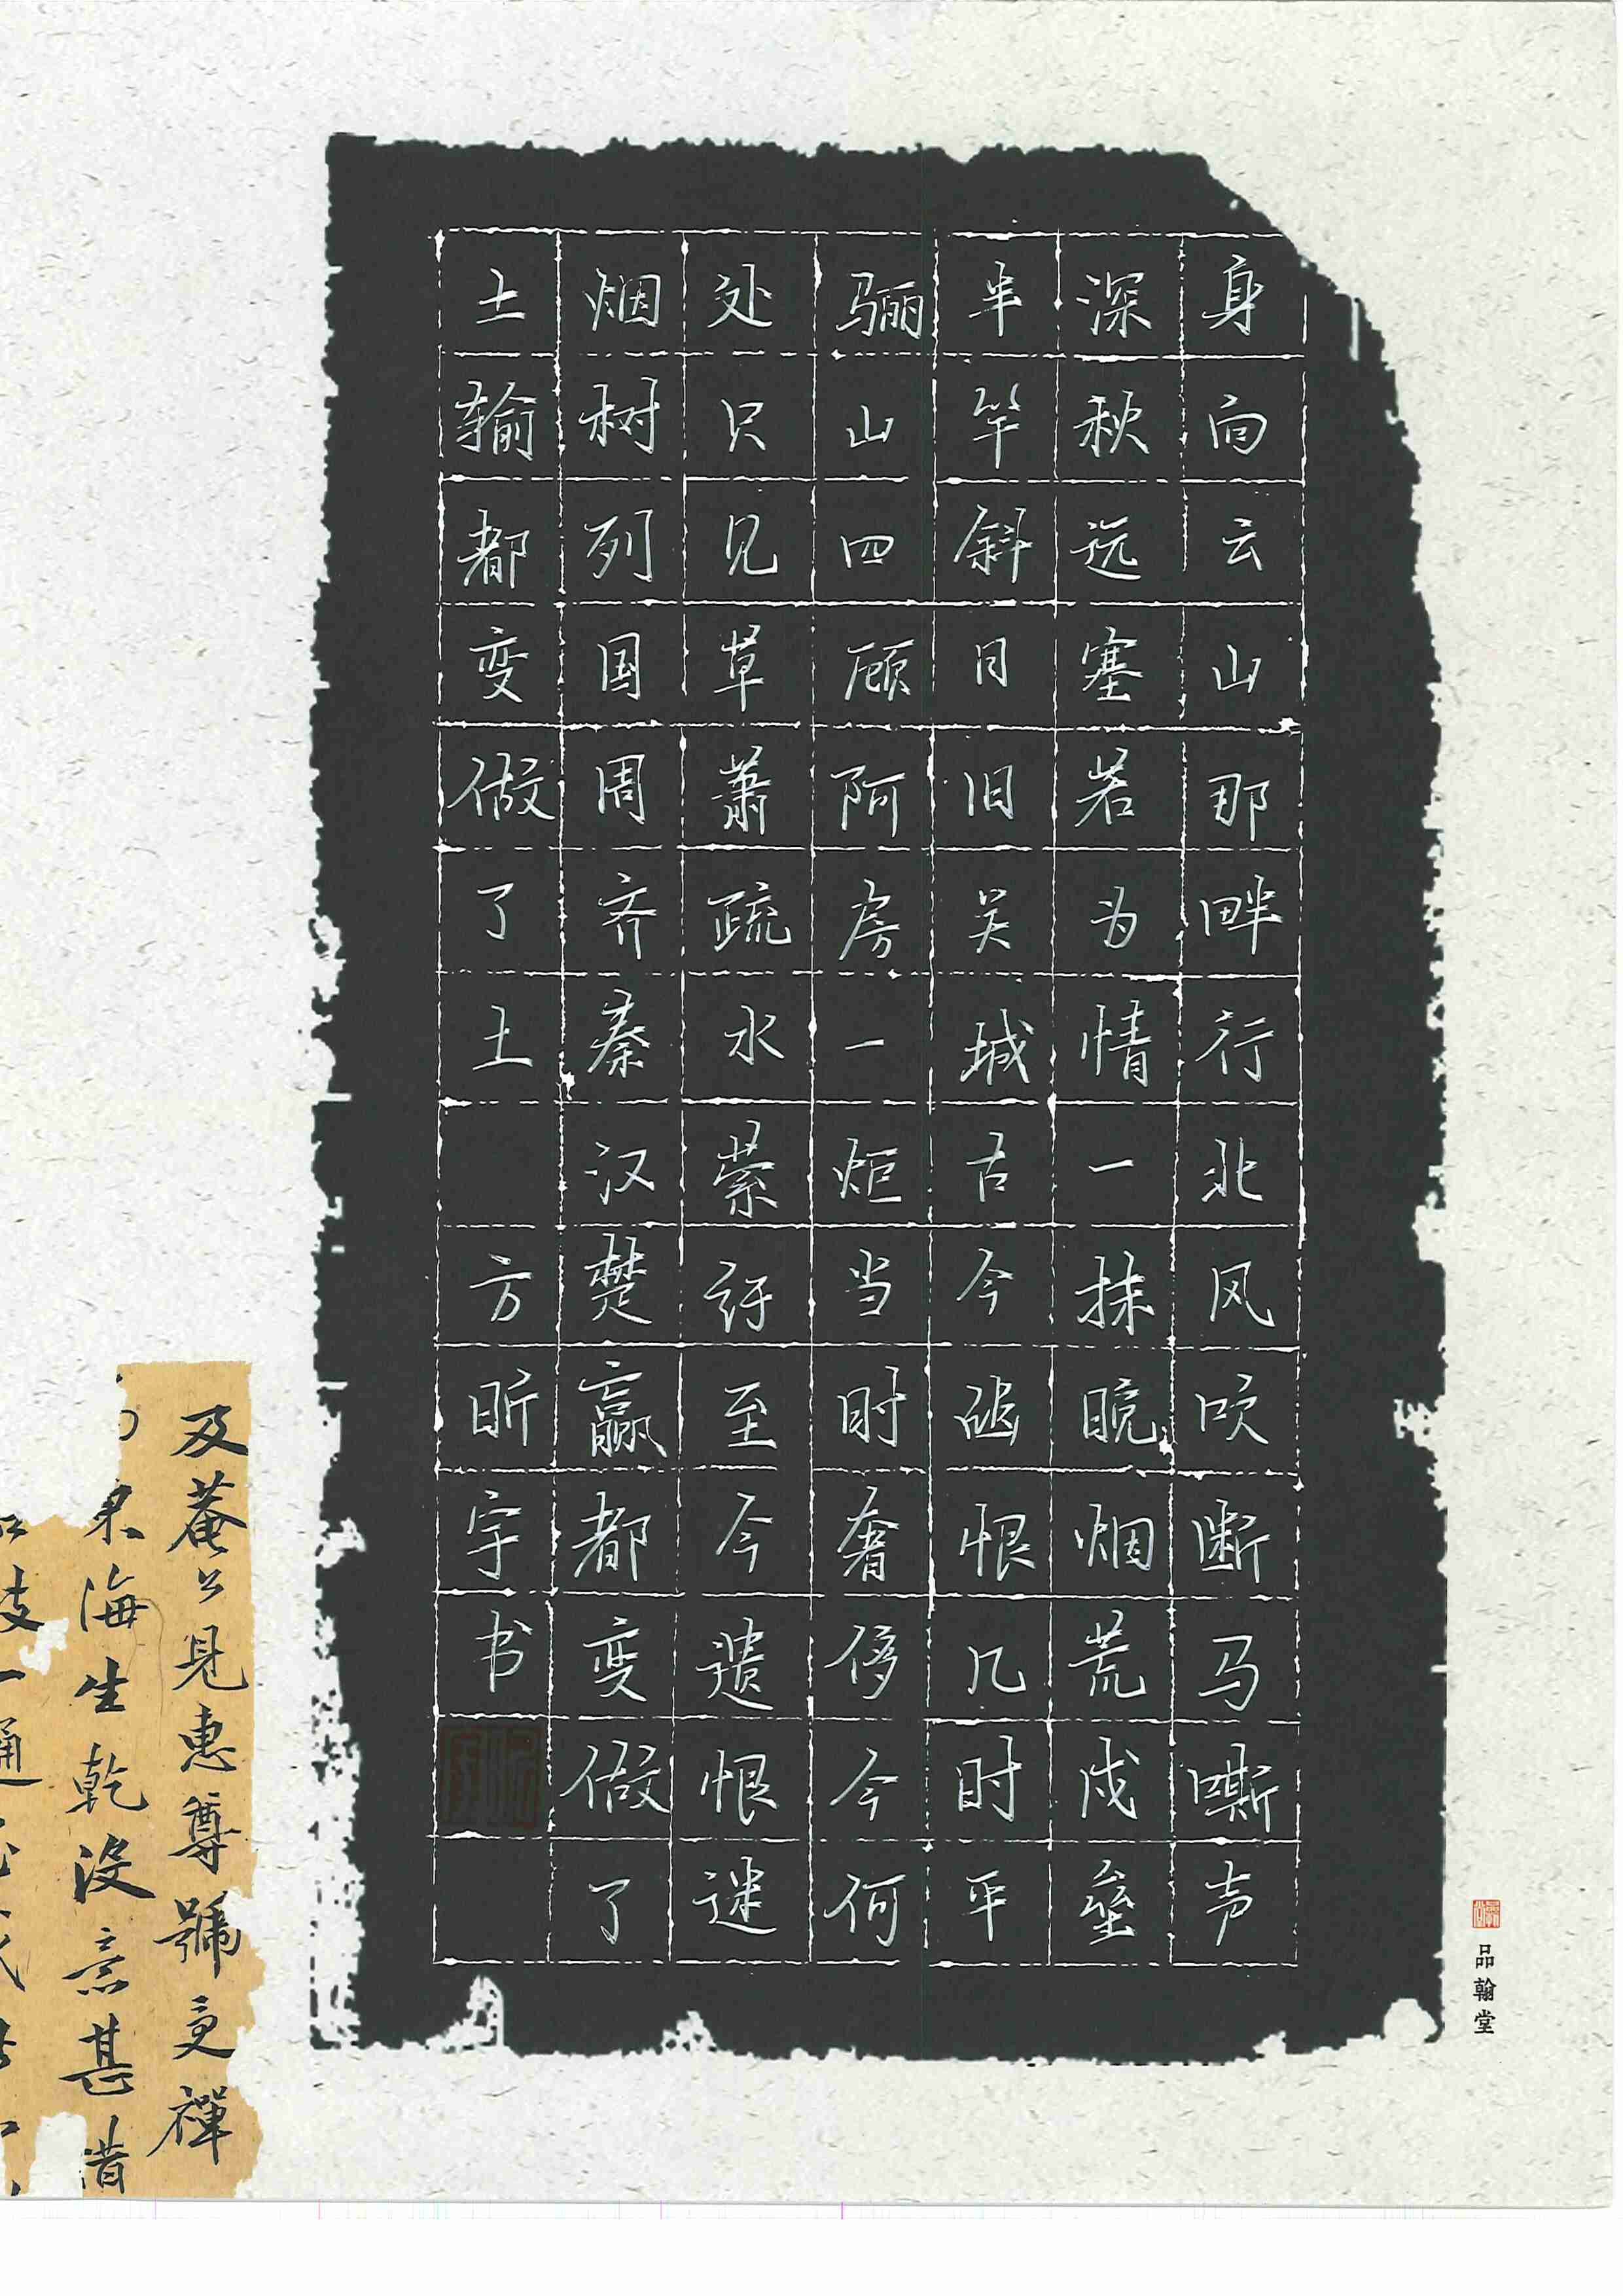 身向云山那畔行北风吹断马嘶声
深秋远塞若为情一抹晚烟荒戍垒
半竿斜日旧关城古今幽恨几时平
骊山四顾阿房一炬当时奢侈今何
处只见草萧疏水萦纡至今遗恨迷
烟树列国周齐秦汉楚赢都变做了
土输都变做了土
方昕宇书
及菴公見惠尊號更禪
東海生乾没意甚昔
品翰堂